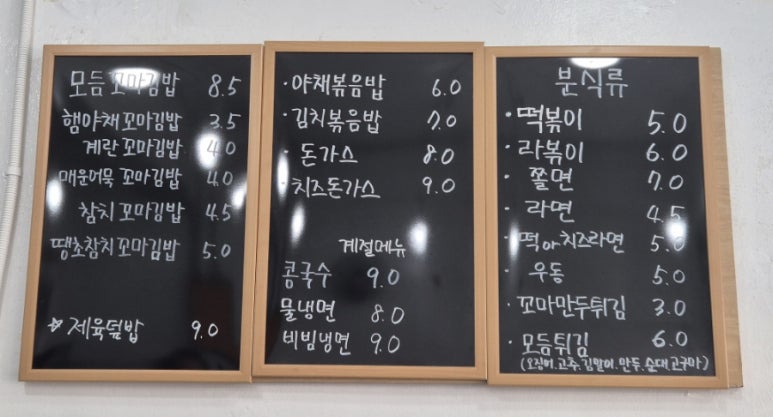 모듬 꼬마김밥 8.5
햄야채꼬마김밥 3.5
계란 꼬마김밥 4.0
매운어묵 꼬마김밥 4.0
참치 꼬마김밥 4.5
땡초참치 꼬마김밥 5.0
☆ 제육덮밥 9.0
· 야채볶음밥 6.0
· 김치볶음밥 7.0
· 돈가스 8.0
· 치즈돈가스 9.0
계절메뉴
콩국수 9.0
물냉면 8.0
비빔냉면 9.0
분식류
· 떡볶이 5.0
· 라볶이 6.0
· 쫄면 7.0
· 라면 4.5
· 떡or치즈라면 5.0
· 우동 5.0
· 꼬마만두튀김 3.0
· 모듬튀김 6.0
(오징어.고추.김말이.만두.순대.고구마)